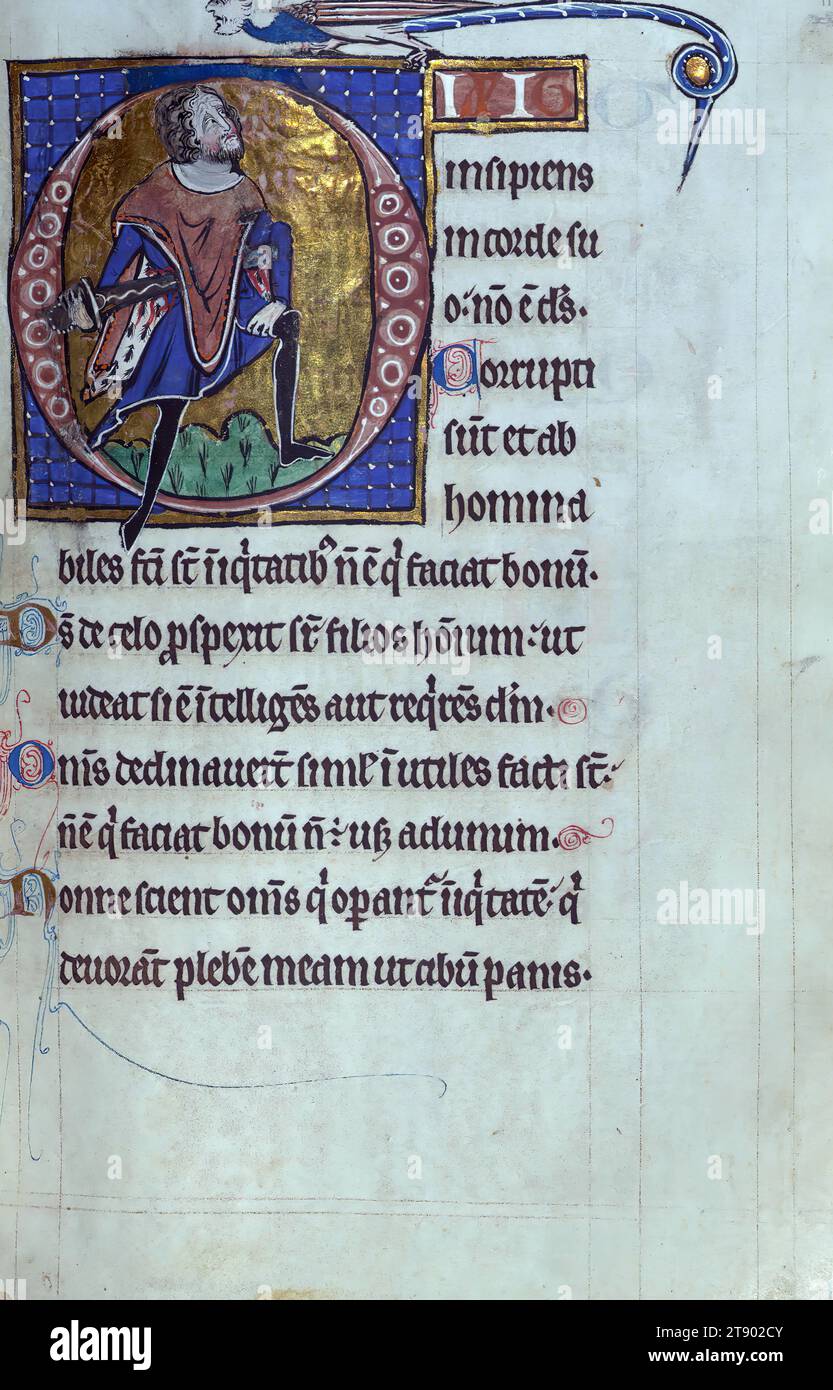 DIXIT
insipiens
in corde su
o· nō ē d̄s·
Corrupti
sūt et ab
homina
biles fc̄i sr̄ īiq̇tatibꝰ n̄ ē q̇ faciat bonū·
Ds̄ de celo ꝓspexit sr̄ filios hōium· ut
uideat si ē ītelligēs aut req̇rēs dm̄·
Omīs declinauerūt siml̄ īutiles facti st̄·
n̄ ē q̇ faciat bonū n̄ ÷ usꝫ ad unum·
Nonne scient omīs q̇ oꝑant᷑ īiq̇tatē· q̇
deuorāt plebē meam ut cibū panis·
alamy
Image ID: 2T902CY
www.alamy.com